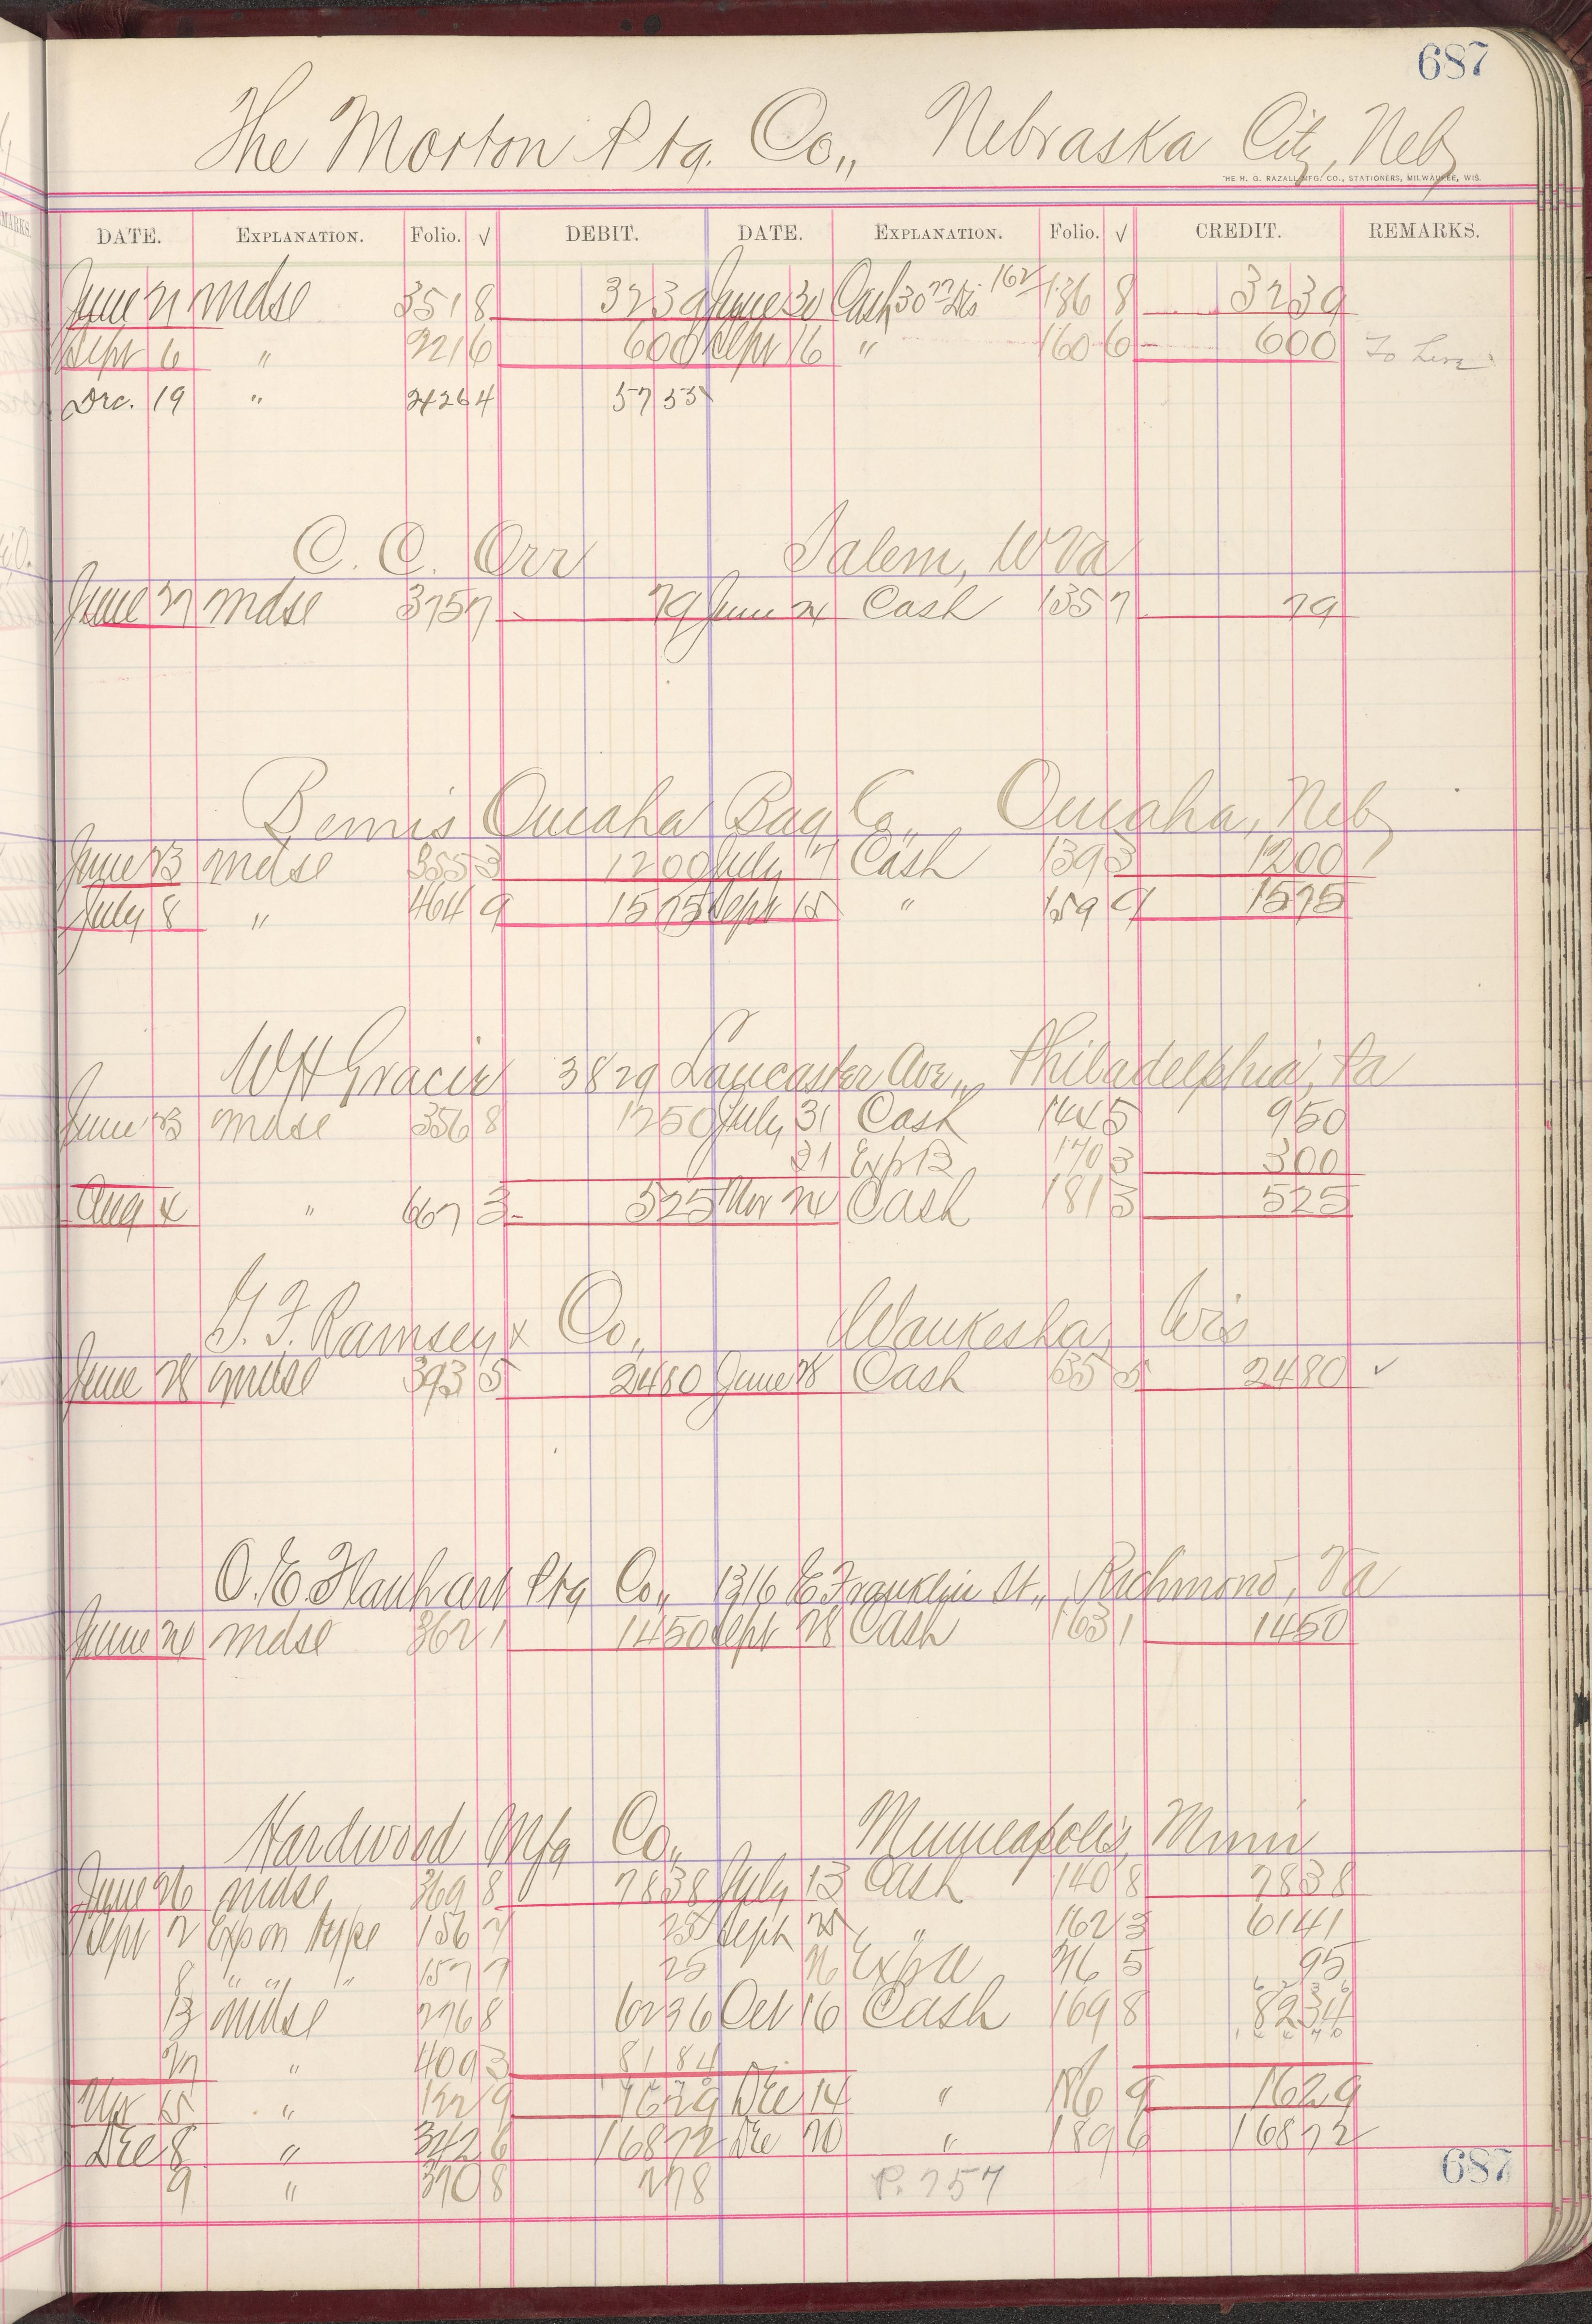 687
The Morton Ptg. Co., Nebraska City, Neb
THE H. G. RAZALL MFG. CO., STATIONERS, MILWAUKEE, WIS.
DATE. EXPLANATION. Folio. √ DEBIT. DATE. EXPLANATION. Folio. √ CREDIT. REMARKS.
June 21 Mdse 351 8 3239 June 30 Cash 136 8 3239
Sept 6 " 221 6 600 Sept 16 " 160 6 600
Dec. 19 " 426 4 5755
C. C. Orr Salem, W Va
June 22 Mdse 375 7 79 June 24 Cash 135 7 79
Bemis Omaha Bag Co., Omaha, Neb
June 23 Mdse 355 3 1200 July 7 Cash 139 3 1200
July 8 " 464 9 1575 Sept 15 " 159 9 1575
W H Gracie 3829 Lancaster Ave., Philadelphia, Pa
June 23 Mdse 356 8 1250 July 31 Cash 144 5 950
31 Exp 13 170 3 300
Aug 4 " 667 3 525 Nov 24 Cash 181 3 525
Ramsey & Co., Waukesha, Wis
June 28 Mdse 393 5 2480 June 28 Cash 135 5 2480 ✓
Ptg Co., 1316 E Franklin St., Richmond, Va
June 24 Mdse 362 1 1450 Sept 28 Cash 163 1 1450
Hardwood Mfg Co., Minneapolis, Minn
June 26 Mdse 369 8 7838 July 13 Cash 140 8 7838
Sept 2 Exp on type 156 7 25 Sept 25 " 162 3 6141
8 " " " 157 7 25 26 Exp 5 95
13 Mdse 276 8 6236 Oct 16 Cash 169 8 8234
27 " 409 3 8184
Nov 15 " 122 9 1629 Dec 14 " 186 9 1629
Dec 8 " 342 6 16872 Dec 20 " 189 6 16872
9 " 370 8 278 P. 757
687